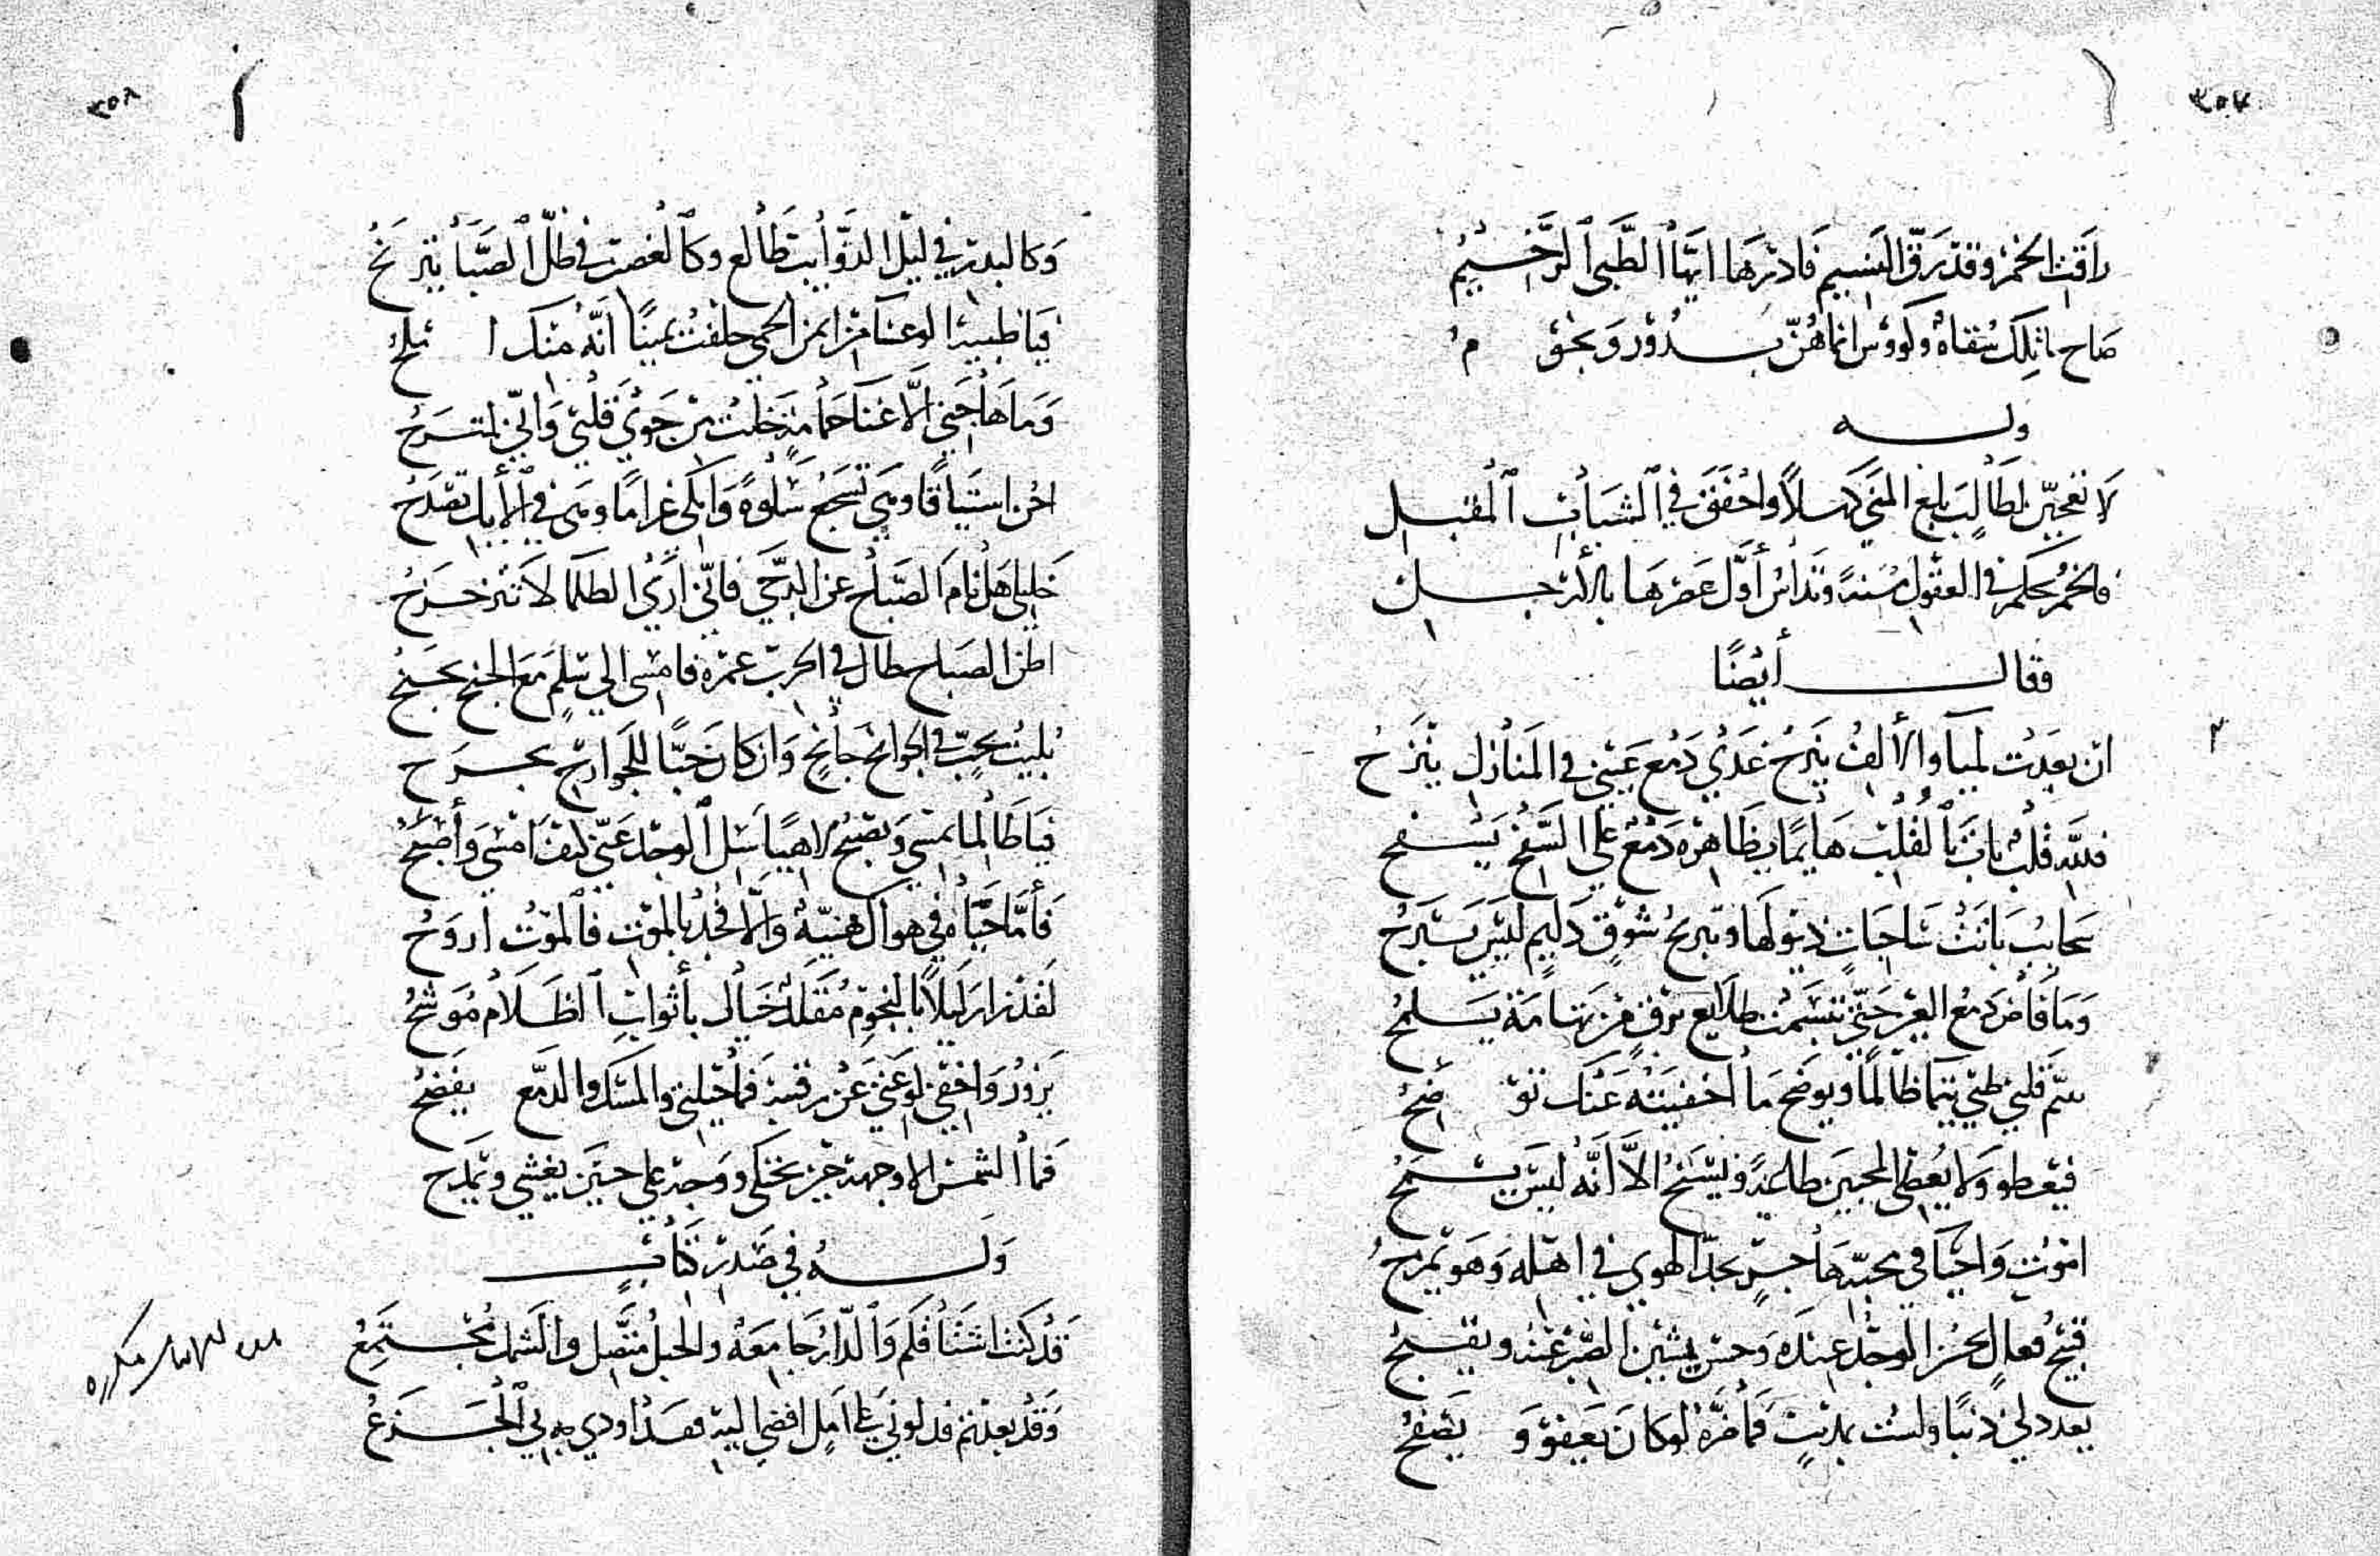 ٣٥٧
راقت الخمر وقد رق النسيم فادرها ايها الظبي الرخيم
صاح ما تلك سقاة وكووس انما هن بدور ونجوم
وله
لا تعجبن لطالب بلغ المنى كهلا واخفق في الشباب المقبل
فالخمر تحكم في العقول مسنة وتداس أول عصرها بالأرجل
فقال أيضا
ان بعدت لميا والألف ينزح غدى دمع عيني في المنازل ينزح
فلله قلب بان بالقلب هايما يظاهره دمع على السفح يسفح
سحايب بانت ساحبات ذيولها وتبريح شوق دايم ليس يبرح
وما فاض دمع العين حتى تبسمت طلايع برق من تهامة يلمح
قلبي ظبي ظالما ويوضح ما أخفيته عنك توضح
فيعطو ولا يعطى المحبين طلعة ويسنح الا أنه ليس يسمح
اموت واحيا في محبة هاجر يجد الهوى في اهله وهو يمرح
قبيح فعال الحزن الوجد عنده وحسن الصبر عنه ويقبح
يعدد لي ذنبا ولست بمذنب فما ضره لو كان يعفو ويصفح
٣٥٨
وكالبدر في ليل الذوايب طالع وكالغصن في ظل الصبا يترنح
فيا ظبية الوعساء من ايمن الحمى حلفت يمينا انه منك املح
وما هاجني الا غنا حمامة خلت من جوى قلبي واني لمترح
احن اشتياقا وهي تسجع سلوة وابكي غراما وهي في الأيك تصدح
خليلي هل نام الصباح عن الدجى فاني ارى الظلما لا تتزحزح
اظن الصباح طال في الحرب عمره فامسى الى سلم مع الجنح يجنح
بليت بحب في الجوانح جانح وان كان حبا للجوارح يجرح
فيا طالما يمسي ويصبح لاهيا سل الوجد عني كيف امسي وأصبح
فأما حياة في هواك هنية والا فجد بالموت فالموت أروح
لقد زار ليلا بالنجوم مقلد خيال بأثواب الظلام موشح
يزور واخفي لوعتي عن رقيبه فما حيلتي والمسك والدمع يفضح
فما الشمس الا وجهه حين يجتلى ووجد على حين يغشي ويمدح
وله في صدر كتاب
قد كنت اشتاقكم والدار جامعة والحبل متصل والشمل مجتمع
وقد بعدتم فدلوني على امل افضي اليه فقد اودى بي الجزع